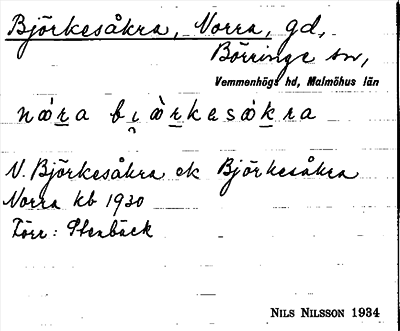 Björkesåkra, Norra, gd,
Börringe sn,
Vemmenhögs hd, Malmöhus län
N. Björkesåkra ek Björkesåkra
Norra kb 1930
Förr: Stenbäck
NILS NILSSON 1934